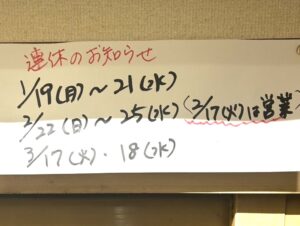 連休のお知らせ
1/19(月)～21(水)
2/22(日)～25(水)(2/17(火)は営業)
3/17(火)・18(水)